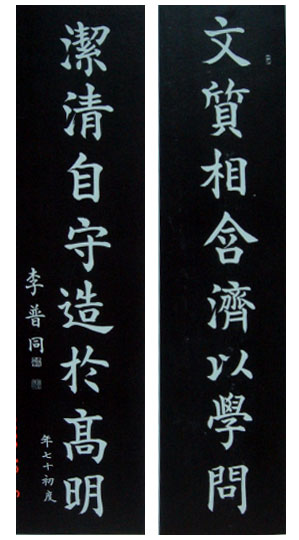 文質相含濟以學問
潔清自守造於高明
李普同
年七十初度